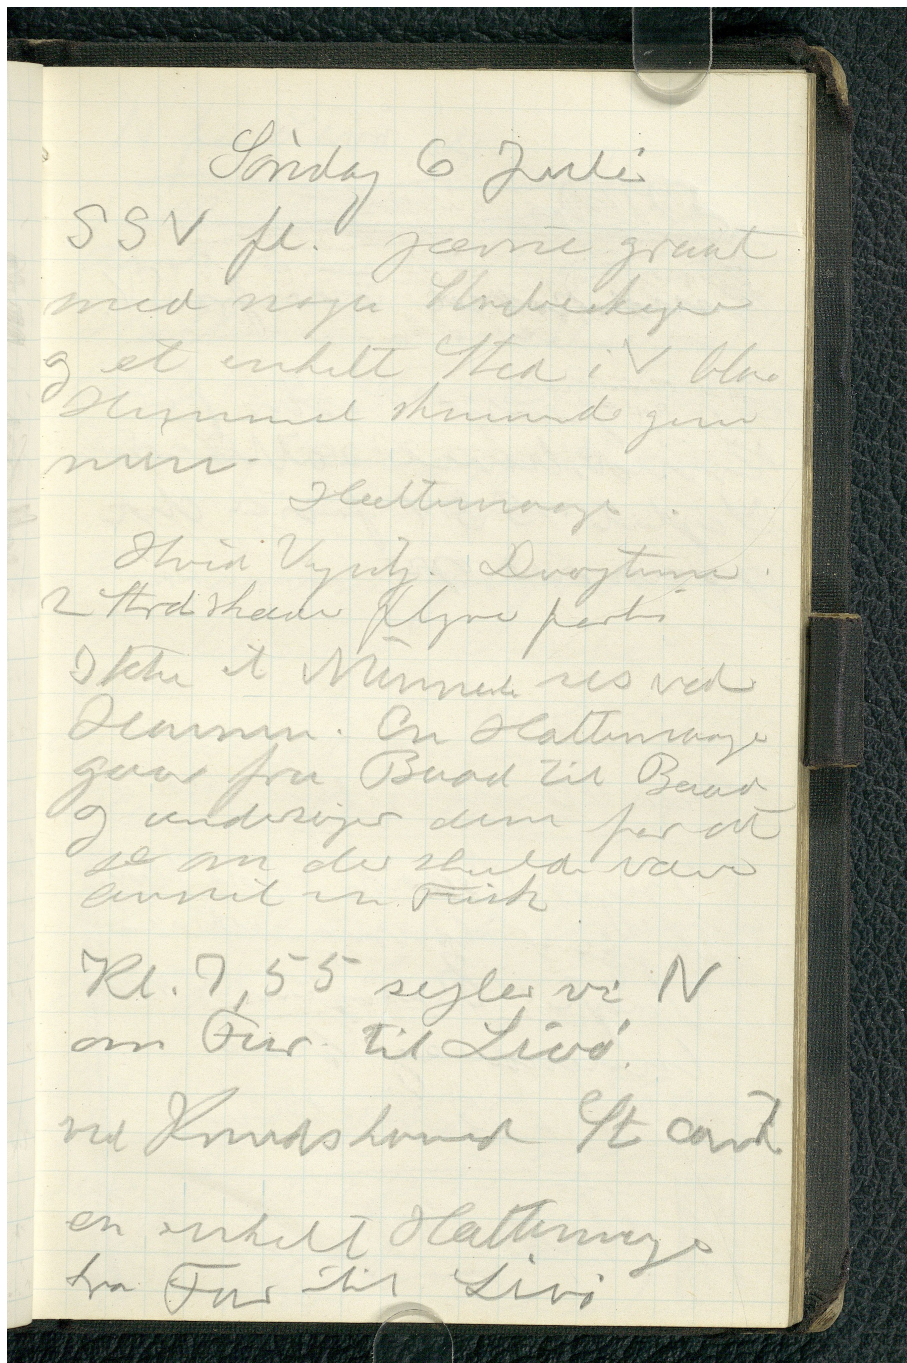 Søndag 6 Juli
SSV fl. jævnt graat
med nogle
og et enkelt Sted i V blaa
Himmel skinnende gen
nem.
Hættemaage.
Hvid Vipstj. Digesvale.
2 Strdskader flyve forbi
Ikke et Menneske ses ved
Havnen. En Hættemaage
gaar fra Baad til Baad
og undersøger dem for at
se om der skulde være
levnet en Fisk
Kl. 7,55 sejler vi N
om Fur til Livø.
ved Knudshoved St. cant.
en enkelt Hættemaage
fra Fur til Livø